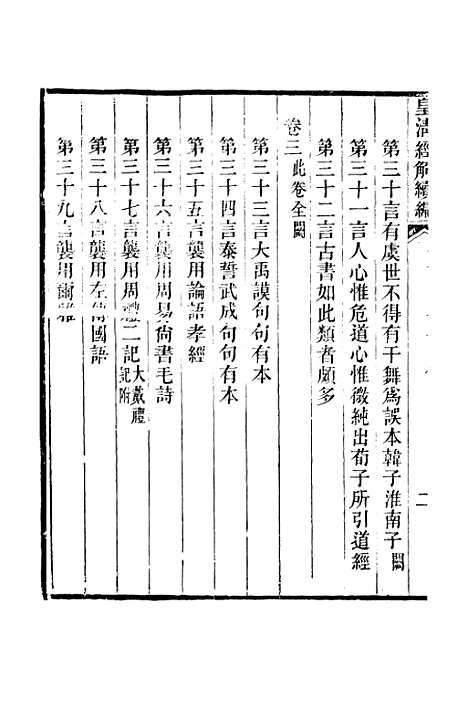 皇清經解續編
二
第三十言有虞世不得有干舞爲誤本韓子淮南子闕
第三十一言人心惟危道心惟微純出荀子所引道經
第三十二言古書如此類者頗多
卷三此卷全闕
第三十三言大禹謨句句有本
第三十四言泰誓武成句句有本
第三十五言襲用論語孝經
第三十六言襲用周易尚書毛詩
第三十七言襲用周禮二記大戴禮記附
第三十八言襲用左傳國語
第三十九言襲用爾雅